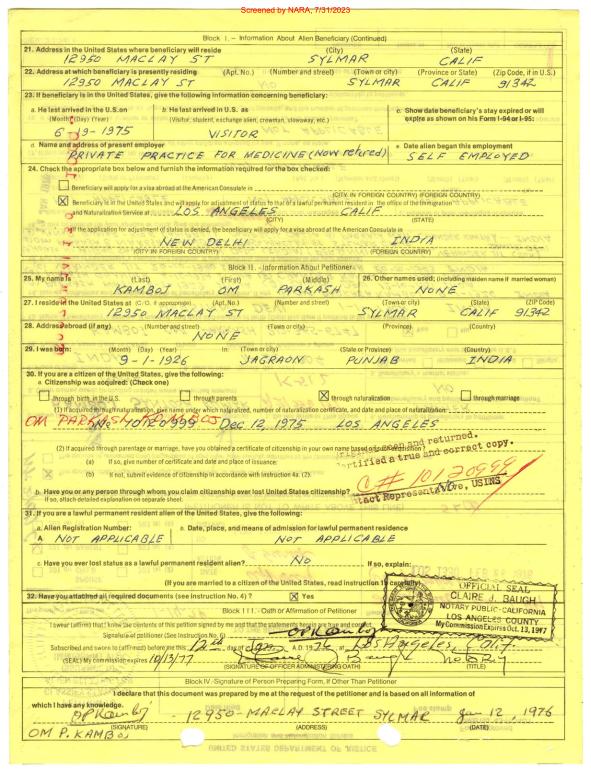 Screened by NARA, 7/31/2023
Block I. - Information About Alien Beneficiary (Continued)
21. Address in the United States where beneficiary will reside (City) (State)
12950 MACLAY ST SYLMAR CALIF
22. Address at which beneficiary is presently residing (Apt. No.) (Number and street) (Town or city) (Province or State) (Zip Code, if in U.S.)
12950 MACLAY ST SYLMAR CALIF 91342
23. If beneficiary is in the United States, give the following information concerning beneficiary:
a. He last arrived in the U.S. on (Month) (Day) (Year)
6-19-1975
b. He last arrived in U.S. as (Visitor, student, exchange alien, crewman, stowaway, etc.)
VISITOR
c. Show date beneficiary's stay expired or will expire as shown on his Form I-94 or I-95:
d. Name and address of present employer
PRIVATE PRACTICE FOR MEDICINE (Now retired)
e. Date alien began this employment
SELF EMPLOYED
24. Check the appropriate box below and furnish the information required for the box checked:
Beneficiary will apply for a visa abroad at the American Consulate in
(CITY IN FOREIGN COUNTRY) (FOREIGN COUNTRY)
Beneficiary is in the United States and will apply for adjustment of status to that of a lawful permanent resident in the office of the Immigration
and Naturalization Service at LOS ANGELES CALIF
(CITY) (STATE)
If the application for adjustment of status is denied, the beneficiary will apply for a visa abroad at the American Consulate in
NEW DELHI INDIA
(CITY IN FOREIGN COUNTRY) (FOREIGN COUNTRY)
Block II. - Information About Petitioner
25. My name is (Last) (First) (Middle) 26. Other names used: (including maiden name if married woman)
KAMBOJ OM PARKASH NONE
27. I reside in the United States at (C/O, if appropriate) (Apt. No.) (Number and street) (Town or city) (State) (ZIP Code)
12950 MACLAY ST SYLMAR CALIF 91342
28. Address abroad (if any) (Number and street) (Town or city) (Province) (Country)
NONE
29. I was born: (Month) (Day) (Year) In: (Town or city) (State or Province) (Country)
9-1-1926 JAGRAON PUNJAB INDIA
30. If you are a citizen of the United States, give the following:
a. Citizenship was acquired: (Check one)
through birth in the U.S. through parents through naturalization through marriage
(1) If acquired through naturalization, give name under which naturalized, number of naturalization certificate, and date and place of naturalization:
OM PARKASH KAMBOJ
No 10120999 Dec 12, 1975 LOS ANGELES
(2) If acquired through parentage or marriage, have you obtained a certificate of citizenship in your own name based on
(a) If so, give number of certificate and date and place of issuance:
(b) If not, submit evidence of citizenship in accordance with Instruction 4a. (2).
seen and returned.
Certified a true and correct copy.
C# 10120999
Contact Representative, USINS
b. Have you or any person through whom you claim citizenship ever lost United States citizenship? No
If so, attach detailed explanation on separate sheet.
31. If you are a lawful permanent resident alien of the United States, give the following:
a. Alien Registration Number: a. Date, place, and means of admission for lawful permanent residence
A NOT APPLICABLE NOT APPLICABLE
c. Have you ever lost status as a lawful permanent resident alien? No If so, explain:
(If you are married to a citizen of the United States, read instruction 1 carefully)
32. Have you attached all required documents (see instruction No. 4)? Yes
OFFICIAL SEAL
CLAIRE J. BAUGH
NOTARY PUBLIC-CALIFORNIA
LOS ANGELES COUNTY
My Commission Expires Oct. 13, 1977
Block III. - Oath or Affirmation of Petitioner
I swear (affirm) that I know the contents of this petition signed by me and that the statements herein are true and correct.
Signature of petitioner (See Instruction No. 6) OPKamboj
Subscribed and sworn to (affirmed) before me this 12th day of Jan, A.D. 1976 at Los Angeles, Calif.
(SEAL) My commission expires 10/13/77 Claire J. Baugh Notary
(SIGNATURE OF OFFICER ADMINISTERING OATH) (TITLE)
Block IV. - Signature of Person Preparing Form, If Other Than Petitioner
I declare that this document was prepared by me at the request of the petitioner and is based on all information of
which I have any knowledge.
OPKamboj - 12950 - MACLAY STREET SYLMAR Jan 12, 1976
(SIGNATURE) (ADDRESS) (DATE)
OM P. KAMBOJ
UNITED STATES DEPARTMENT OF JUSTICE